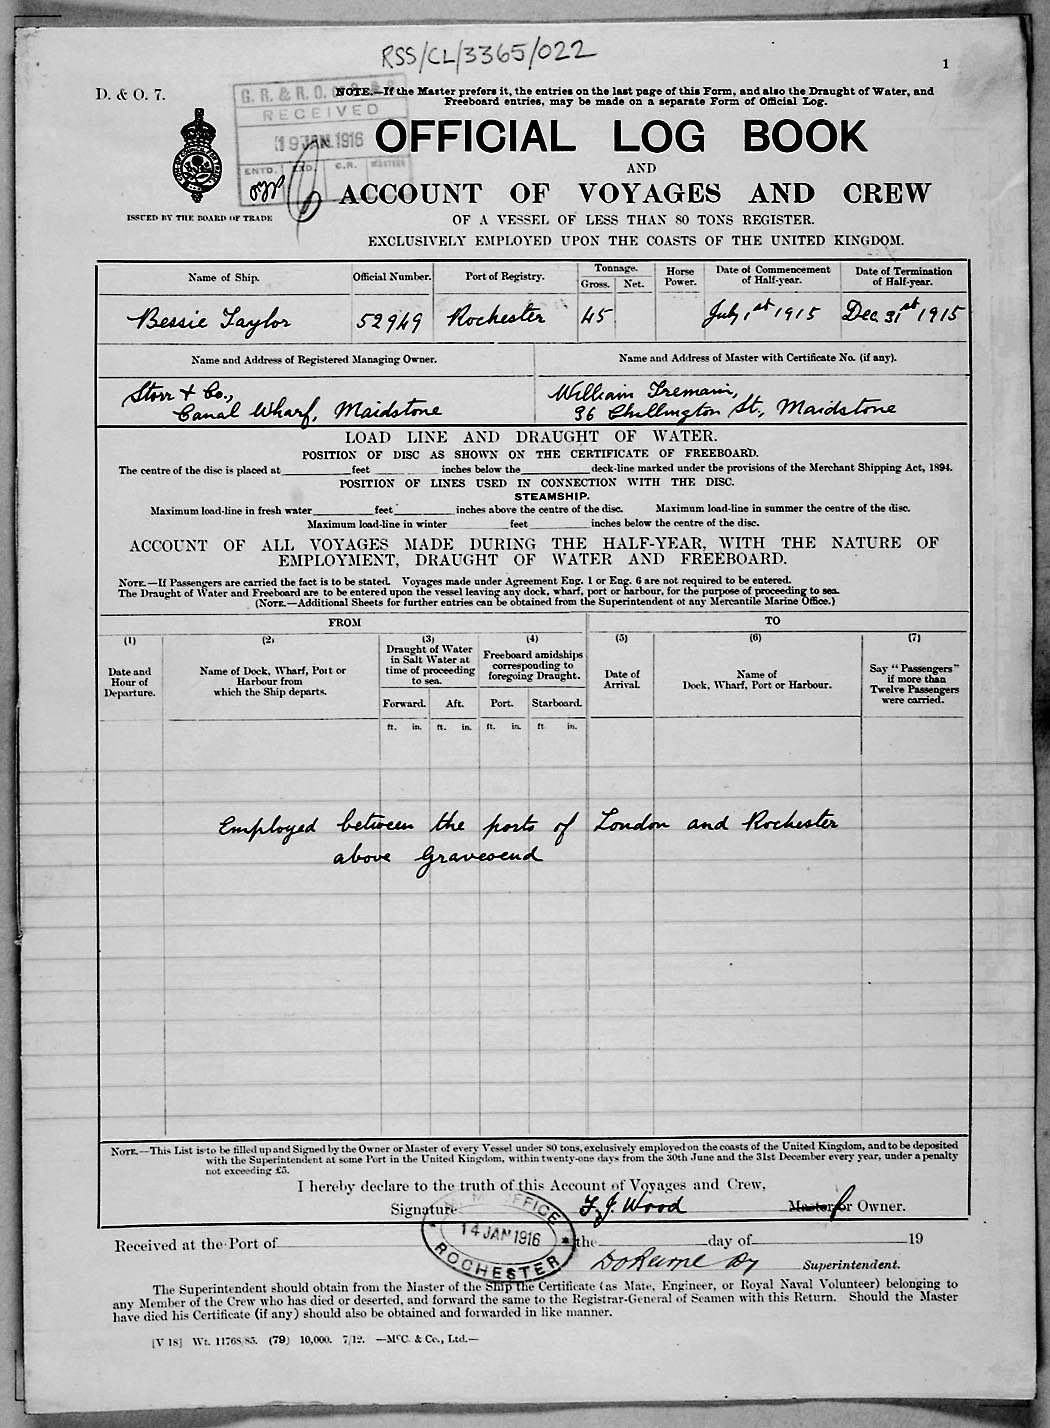 RSS/CL/3365/022
1
D. & O. 7.
NOTE.—If the Master prefers it, the entries on the last page of this Form, and also the Draught of Water, and
Freeboard entries, may be made on a separate Form of Official Log.
G. R. & R. O.
RECEIVED
19 JAN. 1916
ENTD.
C.R.
OFFICIAL LOG BOOK
AND
ACCOUNT OF VOYAGES AND CREW
ISSUED BY THE BOARD OF TRADE
OF A VESSEL OF LESS THAN 80 TONS REGISTER.
EXCLUSIVELY EMPLOYED UPON THE COASTS OF THE UNITED KINGDOM.
Name of Ship. Official Number. Port of Registry. Tonnage. Gross. Net. Horse Power. Date of Commencement of Half-year. Date of Termination of Half-year.
Bessie Taylor 52949 Rochester 45 July 1st 1915 Dec 31st 1915
Name and Address of Registered Managing Owner. Name and Address of Master with Certificate No. (if any).
Storr & Co., William Tremain,
Canal Wharf, Maidstone 36 Chillington St., Maidstone
LOAD LINE AND DRAUGHT OF WATER.
POSITION OF DISC AS SHOWN ON THE CERTIFICATE OF FREEBOARD.
The centre of the disc is placed at feet inches below the deck-line marked under the provisions of the Merchant Shipping Act, 1894.
POSITION OF LINES USED IN CONNECTION WITH THE DISC.
STEAMSHIP.
Maximum load-line in fresh water feet inches above the centre of the disc. Maximum load-line in summer the centre of the disc.
Maximum load-line in winter feet inches below the centre of the disc.
ACCOUNT OF ALL VOYAGES MADE DURING THE HALF-YEAR, WITH THE NATURE OF
EMPLOYMENT, DRAUGHT OF WATER AND FREEBOARD.
NOTE.—If Passengers are carried the fact is to be stated. Voyages made under Agreement Eng. 1 or Eng. 6 are not required to be entered.
The Draught of Water and Freeboard are to be entered upon the vessel leaving any dock, wharf, port or harbour, for the purpose of proceeding to sea.
(NOTE.—Additional Sheets for further entries can be obtained from the Superintendent of any Mercantile Marine Office.)
FROM TO
(1) (2) (3) (4) (5) (6) (7)
Date and Hour of Departure.
Name of Dock, Wharf, Port or Harbour from which the Ship departs.
Draught of Water in Salt Water at time of proceeding to sea.
Freeboard amidships corresponding to foregoing Draught.
Date of Arrival.
Name of Dock, Wharf, Port or Harbour.
Say "Passengers" if more than Twelve Passengers were carried.
Forward. Aft. Port. Starboard.
ft. in. ft. in. ft. in. ft in.
Employed between the ports of London and Rochester
above Gravesend
NOTE.—This List is to be filled up and Signed by the Owner or Master of every Vessel under 80 tons, exclusively employed on the coasts of the United Kingdom, and to be deposited
with the Superintendent at some Port in the United Kingdom, within twenty-one days from the 30th June and the 31st December every year, under a penalty
not exceeding £5.
I hereby declare to the truth of this Account of Voyages and Crew,
Signature F. J. Wood Master or Owner.
M. M. OFFICE
14 JAN 1916
ROCHESTER
Received at the Port of the day of 19
Superintendent.
The Superintendent should obtain from the Master of the Ship the Certificate (as Mate, Engineer, or Royal Naval Volunteer) belonging to
any Member of the Crew who has died or deserted, and forward the same to the Registrar-General of Seamen with this Return. Should the Master
have died his Certificate (if any) should also be obtained and forwarded in like manner.
[V 18] Wt. 11768/85. (79) 10,000. 7/12. —McC. & Co., Ltd.—